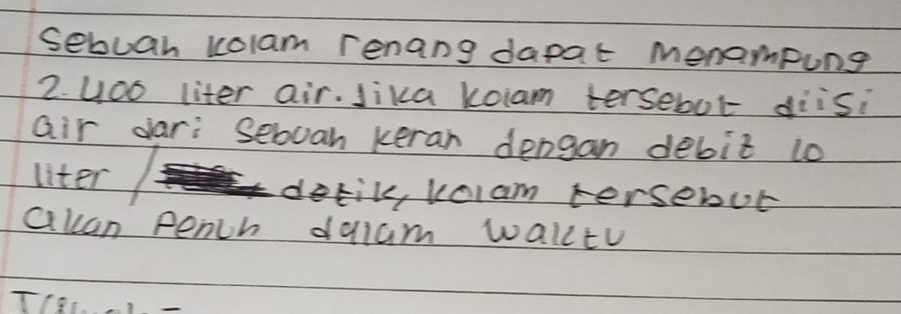 Sebuah kolam renang dapat menampung
2.400 liter air. Jika kolam tersebut diisi
air dari sebuah keran dengan debit 10
liter / detik, kolam tersebut
akan penuh dalam waktu